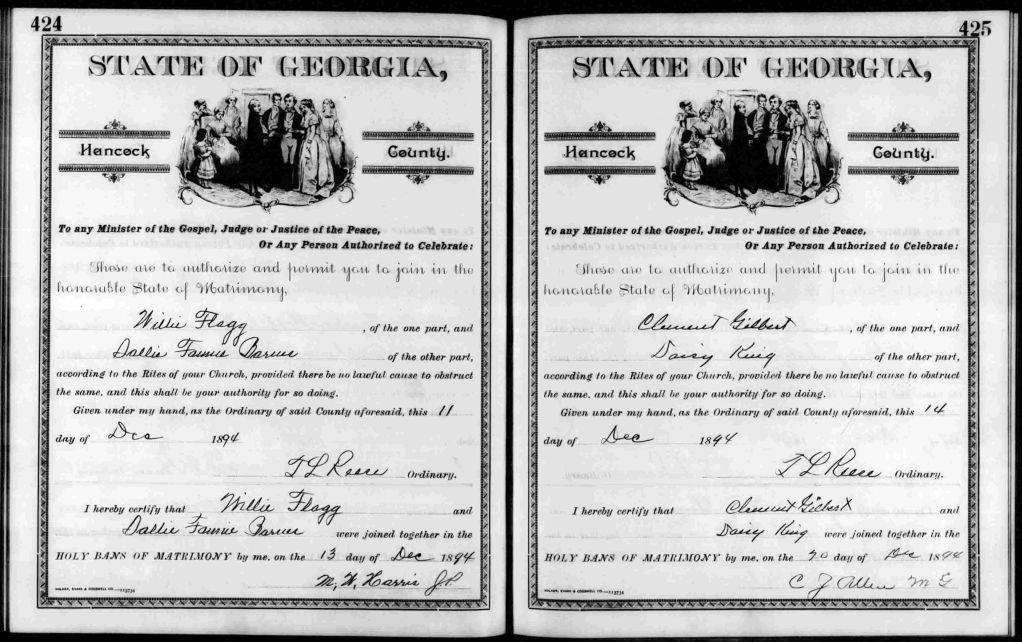 424
STATE OF GEORGIA,
Hancock County.
To any Minister of the Gospel, Judge or Justice of the Peace,
Or Any Person Authorized to Celebrate:
These are to authorize and permit you to join in the
honorable State of Matrimony,
Willie Flagg , of the one part, and
Dallie Fannie Barnes of the other part,
according to the Rites of your Church, provided there be no lawful cause to obstruct
the same, and this shall be your authority for so doing.
Given under my hand, as the Ordinary of said County aforesaid, this 11
day of Dec 1894
T L Reese Ordinary.
I hereby certify that Willie Flagg and
Dallie Fannie Barnes were joined together in the
HOLY BANS OF MATRIMONY by me, on the 13 day of Dec 1894
M. W. Harris J.P.
425
STATE OF GEORGIA,
Hancock County.
To any Minister of the Gospel, Judge or Justice of the Peace,
Or Any Person Authorized to Celebrate:
These are to authorize and permit you to join in the
honorable State of Matrimony,
Clement Gilbert , of the one part, and
Daisy King of the other part,
according to the Rites of your Church, provided there be no lawful cause to obstruct
the same, and this shall be your authority for so doing.
Given under my hand, as the Ordinary of said County aforesaid, this 14
day of Dec 1894
T L Reese Ordinary.
I hereby certify that Clement Gilbert and
Daisy King were joined together in the
HOLY BANS OF MATRIMONY by me, on the 20 day of Dec 1894
C J Allen M G